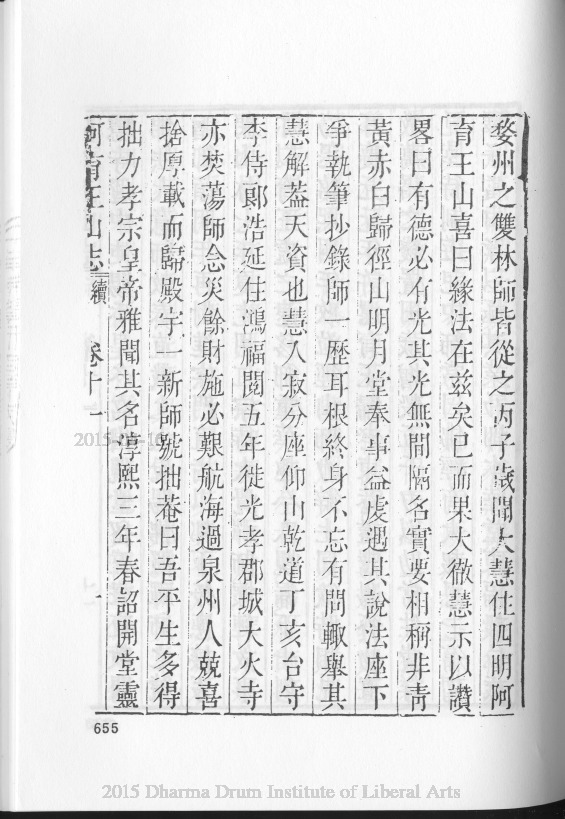 婺州之雙林師皆從之丙子歲聞大慧住四明阿
育王山喜曰緣法在兹矣已而果大徹慧示以讚
畧曰有德必有光其光無間隔名實要相稱非靑
黃赤白歸徑山明月堂奉事益虔遇其說法座下
爭執筆抄錄師一歷耳根終身不忘有問輙舉其
慧解葢天資也慧入寂分座仰山乾道丁亥台守
李侍郞浩延住鴻福閱五年徙光孝郡城大火寺
亦焚蕩師念災餘財施必艱航海過泉州人兢喜
捨厚載而歸殿宇一新師號拙菴曰吾平生多得
拙力孝宗皇帝雅聞其名淳熙三年春詔開堂靈
阿育王山志 續 卷十一 一
655
2015-04-10
2015 Dharma Drum Institute of Liberal Arts